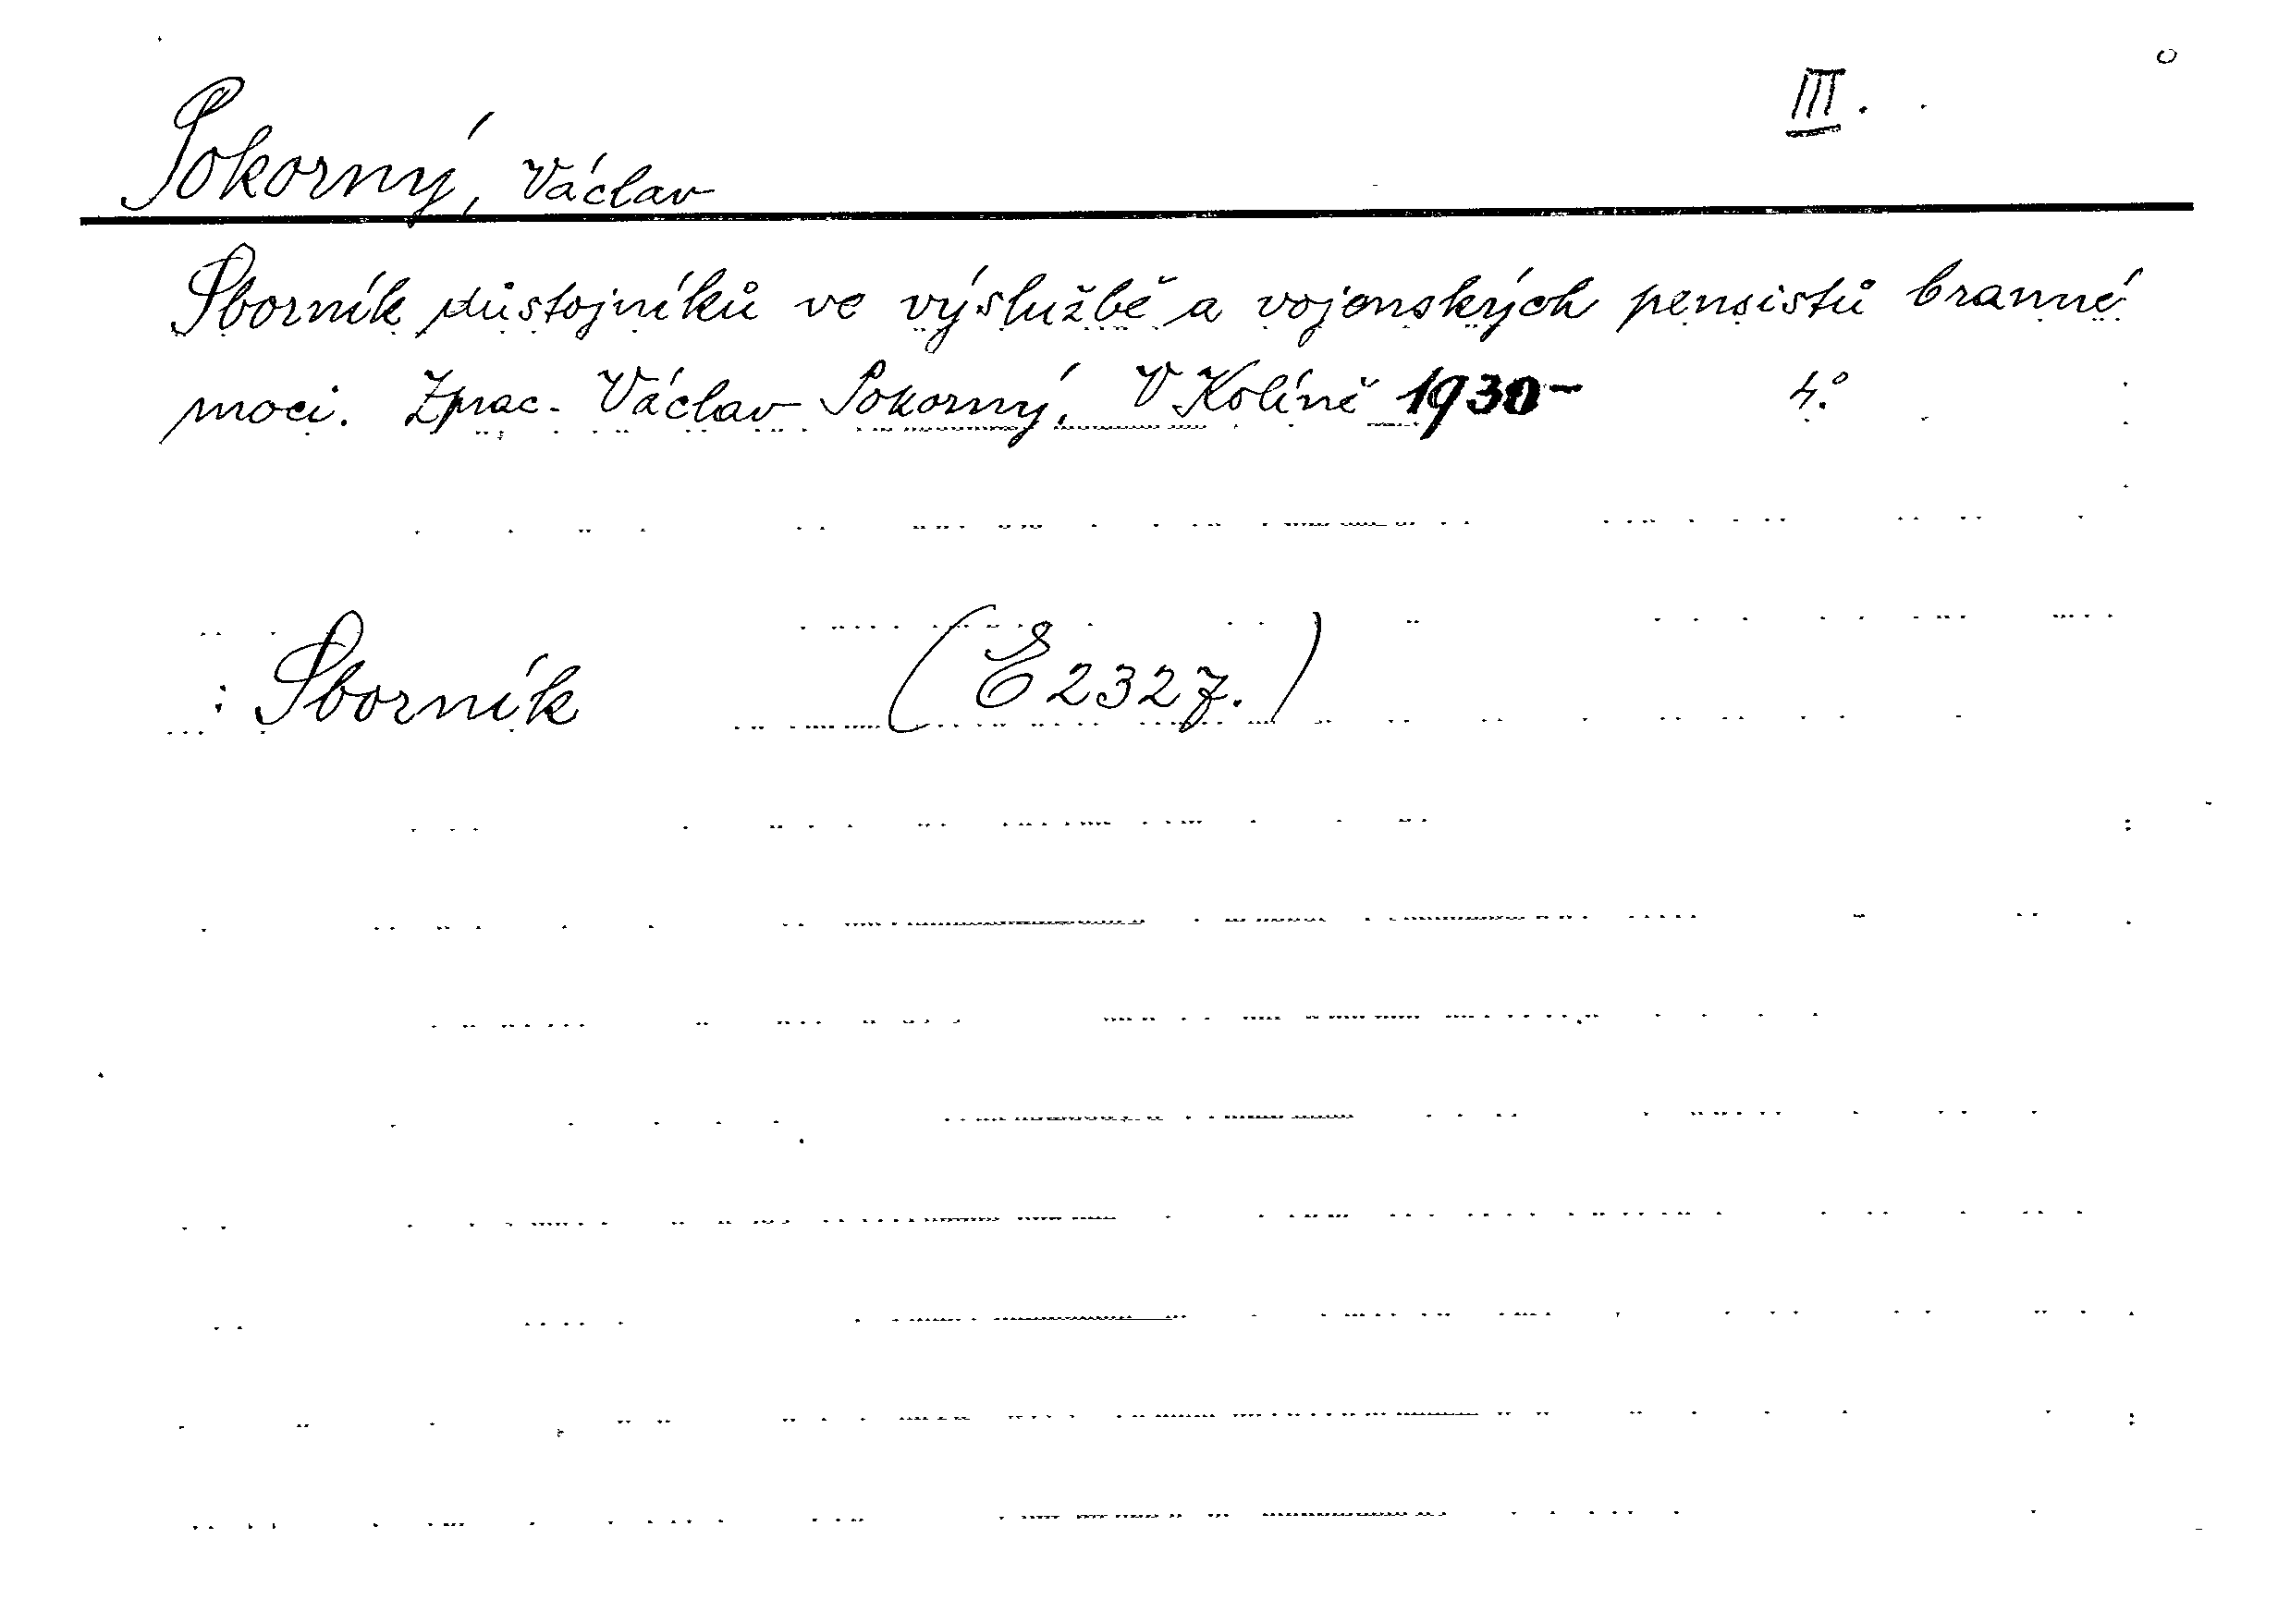 III.
Pokorný, Václav
Sborník důstojníků ve výslužbě a vojenských pensistů branné
moci. Zprac. Václav Pokorný. V Kolíně 1930- 4.°
: Sborník (E 2327.)